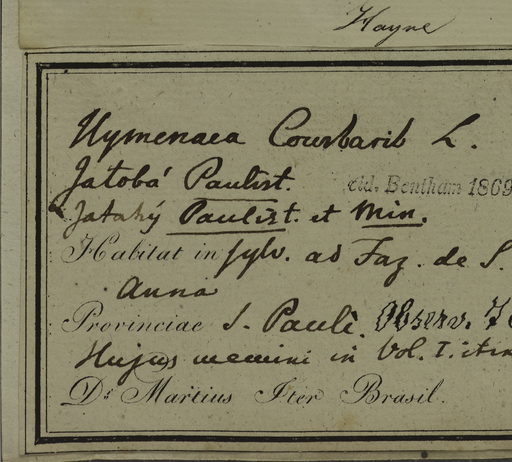 Hayne
Hymenaea Courbaril L.
Jatobá Paulist.
eld. Bentham 1869
Jatahý Paulist. et Min.
Habitat in sylv. ad Faz. de S.
Anna
Provinciae S. Pauli. Observ.
Hujus memini in Vol. I. itin
Dr. Martius Iter Brasil.